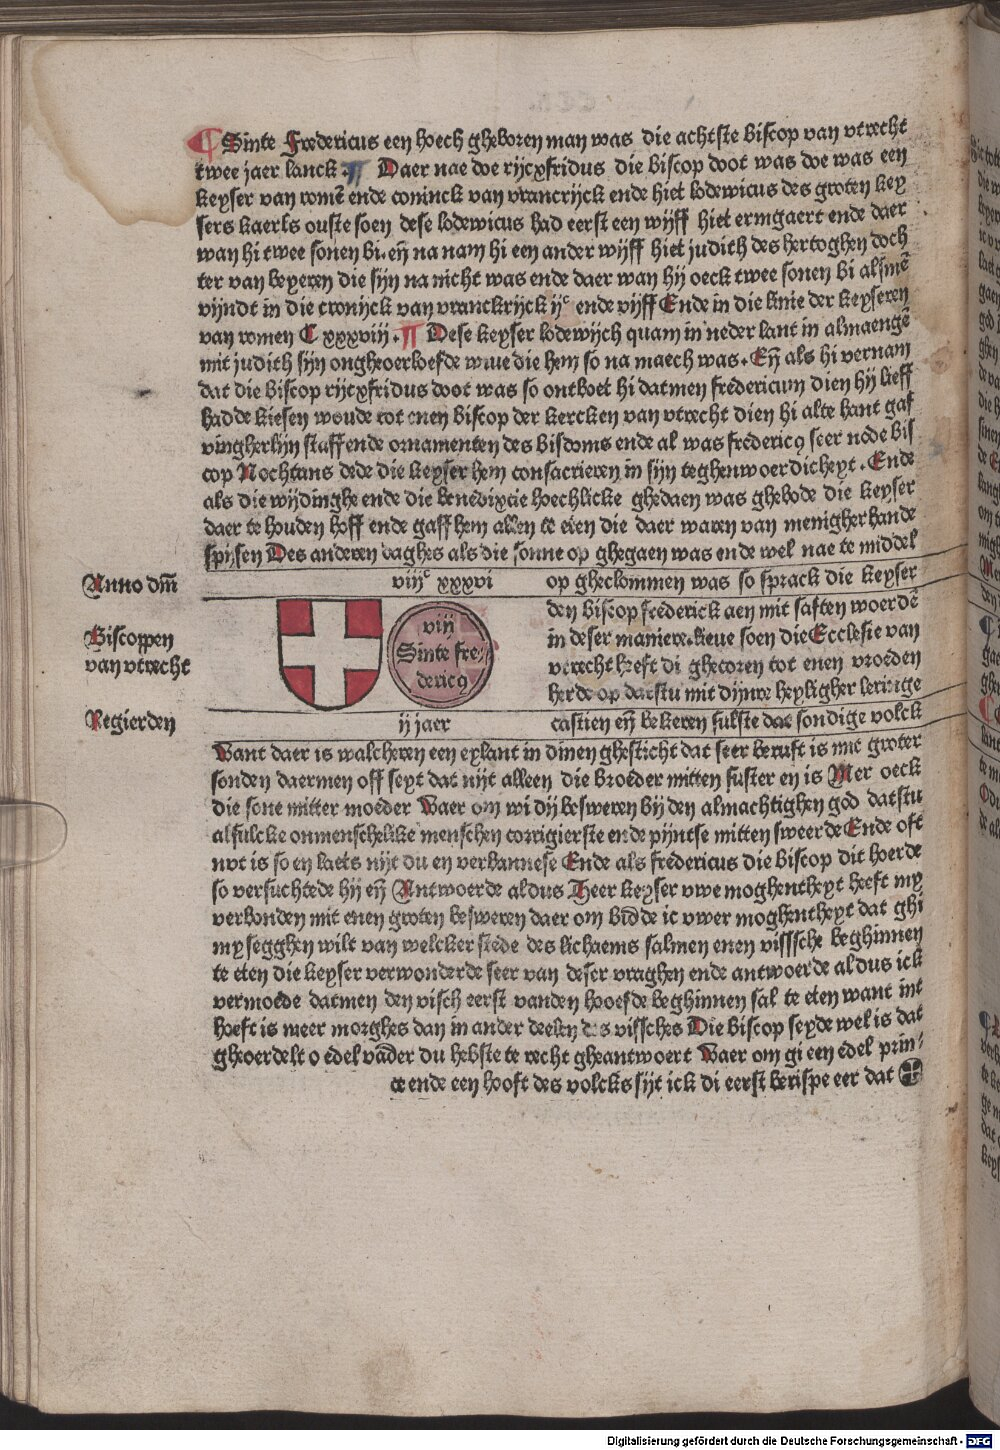 ¶ Sinte Fredericus een hoech gheboren man was die achtste biscop van vtrecht
twee jaer lanck ¶ Daer nae doe rijcxfridus die biscop doot was doe was een
keyser van romē ende coninck van vrancrijck ende hiet lodewicus des groten key
sers kaerls ouste soen dese lodewicus had eerst een wijff hiet ermgaert ende daer
wan hi twee sonen bi. eñ na nam hi een ander wijff hiet judith des hertoghen doch
ter van beyeren die sijn na nicht was ende daer wan hij oeck twee sonen bi alsmē
vijndt in die cronijck van vranckrijck ijᶜ ende vijff Ende in die linie der keyseren
van romen C xxxviij . ¶ Dese keyser lodewijch quam in neder lant in almaengē
mit judith sijn ongheoerloefde wiue die hem so na maech was. Eñ als hi vernam
dat die biscop rijcxfridus doot was so ontboet hi datmen fredericum dien hij lieff
hadde kiesen woude tot enen biscop der kercken van vtrecht dien hi alte hant gaf
vingherlijn staff ende ornamenten des bisdoms ende al was fredericq seer node bis
cop Nochtans dede die keyser hem consacrieren in sijn teghenwoerdicheyt . Ende
als die wijdinghe ende die benedixcie hoechlicke ghedaen was ghebode die keyser
daer te houden hoff ende gaff hem allen te eten die daer waren van menigher hande
spijsen Des anderen daghes als die sonne op ghegaen was ende wel nae te middel
Anno dm̄ viijᶜ xxxvi op gheclommen was so sprack die keyser
den biscop frederick aen mit saften woerdē
Biscoppen
van vtrecht
viij
Sinte fre
dericq
in deser maniere. lieue soen die Ecclesie van
vtrecht heeft di ghecoren tot enen vroeden
herde op datstu mit dijnre heyligher leringe
Regierden ij jaer castien eñ bekeren sulste dat sondige volck
Want daer is walcheren een eylant in dinen ghesticht dat seer beruft is mit groter
sonden daermen off seyt dat nijt alleen die broeder mitten suster en is Mer oeck
die sone mitter moeder Waer om wi dij besweren bij den almachtighen god datstu
alsulcke onmenschelike menschen corrigierste ende pijntse mitten sweerde Ende oft
not is so en laets nijt du en verbannese Ende als fredericus die biscop dit hoerde
so versuchtede hij eñ Antwoerde aldus Heer keyser vwe moghentheyt heeft my
verbonden mit enen groten besweren daer om bidde ic vwer moghentheyt dat ghi
my segghen wilt van welcker stede des lichaems salmen enen visssche beghinnen
te eten die keyser verwonderde seer van deser vraghen ende antwoerde aldus ick
vermoede datmen den visch eerst vanden hooefde beghinnen sal te eten want int
hoeft is meer morghes dan in ander deelen des vissches Die biscop seyde wel is dat
gheoerdelt o edel vader du hebste te recht gheantwoert Waer om gi een edel prin-
ce ende een hooft des volcks sijt ick di eerst berispe eer dat
Digitalisierung gefördert durch die Deutsche Forschungsgemeinschaft - DFG